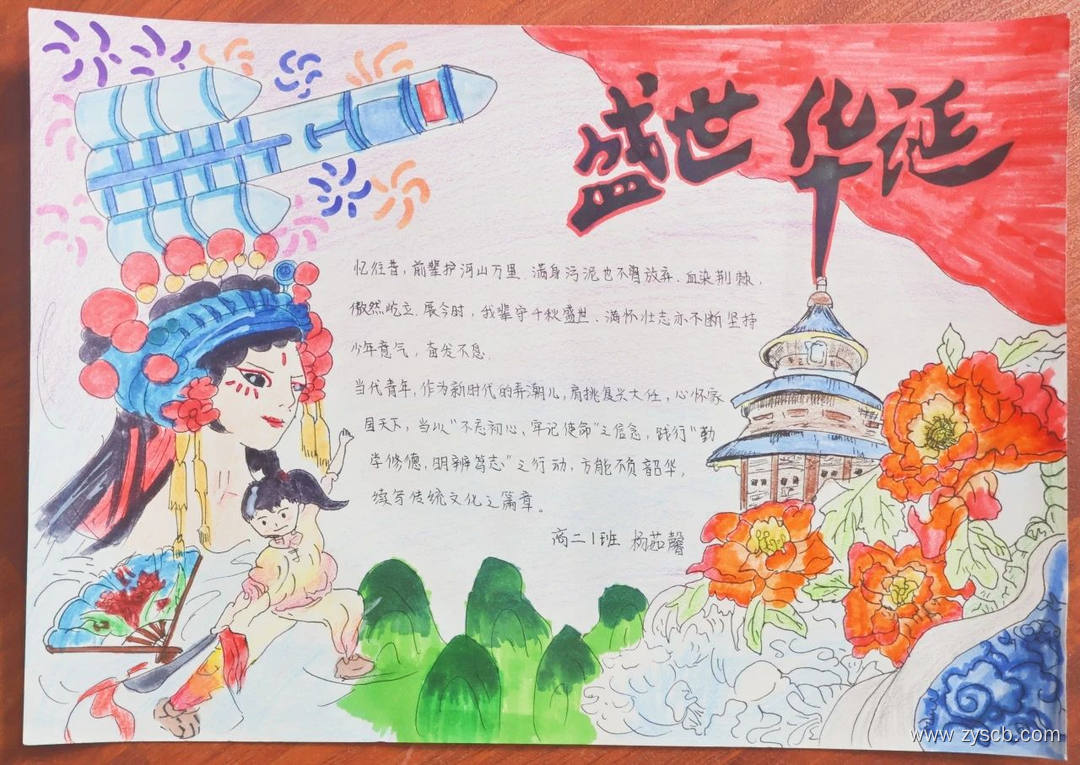 盛世华诞
忆往昔，前辈护河山万里、满身污泥也不曾放弃、血染荆棘，
傲然屹立、展今时，我辈守千秋盛世、满怀壮志亦不断坚持
少年意气，奋发不息.
当代青年，作为新时代的弄潮儿，肩挑复兴大任，心怀家
国天下，当以“不忘初心、牢记使命”之信念，践行“勤
学修德，明辨笃志”之行动，方能不负韶华，
续写传统文化之篇章。
高二1班 杨茹馨
www.zyscb.com